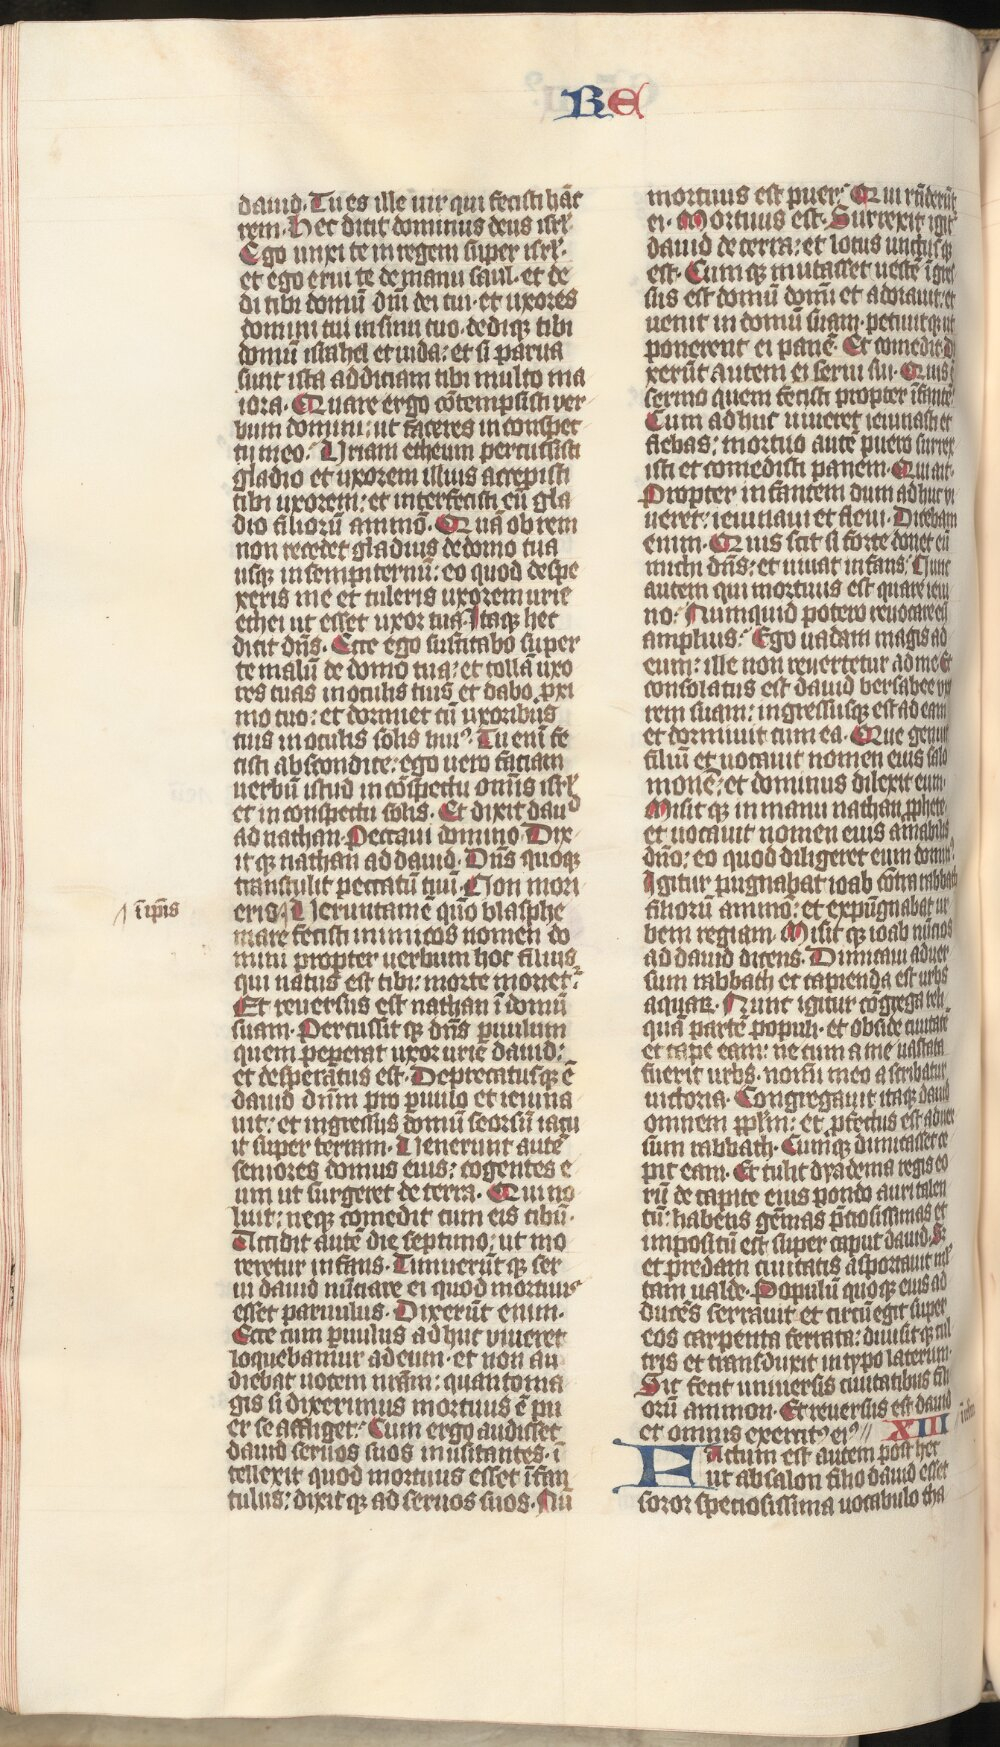 RE
dauid. Tu es ille uir qui fecisti hāc
rem. Hec dicit dominus deus isrl̄.
Ego unxi te in regem super isrl̄.
et ego erui te de manu saul. et de
di tibi domū dn̄i dei tui. et uxores
domini tui in sinu tuo. dediqꝫ tibi
domū israhel et iuda: et si parua
sunt ista addiciam tibi multo ma
iora. Quare ergo cōtempsisti ver
bum domini: ut faceres in conspec
tu meo. Uriam etheum percussisti
gladio et uxorem illius accepisti
tibi uxorem: et interfecisti eū gla
dio filiorū ammō. Quā ob rem
non recedet gladius de domo tua
usqꝫ in sempiternū: eo quod despe
xeris me et tuleris uxorem urie
ethei ut esset uxor tua. Itaqꝫ hec
dicit dn̄s. Ecce ego suscitabo super
te malū de domo tua: et tollā uxo
res tuas in oculis tuis et dabo ꝓxi
mo tuo: et dormiet cū uxoribus
tuis in oculis solis huiꝰ. Tu eni fe
cisti abscondite: ego uero faciam
uerbū istud in cōspectu om̄is isrl̄
et in conspectu solis. Et dixit dauᵈ
ad nathan. Peccaui domino. Dix
it qꝫ nathan ad dauid. Dn̄s quoqꝫ
transtulit peccatū tuū. Non mori
eris. Ueruntamē quō blasphe
īimīs
mare fecisti inimicos nomen do
mini propter uerbum hoc filius
qui natus est tibi: morte morietʳ.
Et reuersus est nathan ī domū
suam. Percussit qꝫ dn̄s ꝑuulum
quem peperat uxor urie dauid:
et desperatus est. Deprecatusqꝫ ē
dauid dn̄m pro ꝑuulo et ieiuna
uit: et ingressus domū seorsū iacu
it super terram. Uenerunt autē
seniores domus eius: cogentes e
um ut surgeret de terra. Qui no
luit: neqꝫ comedit cum eis cibū.
Accidit autē die septimo: ut mo
reretur infans. Timuerūt qꝫ ser
ui dauid nūciare ei quod mortuus
esset paruulus. Dixerūt enim.
Ecce cum ꝑuulus ad huc viueret
loquebamur ad eum. et non au
diebat uocem nrām: quanto ma
gis si dixerimus mortuus ē pu
er se affliget. Cum ergo audisset
dauid seruos suos musitantes. ī
tellexit quod mortuus esset īfan
tulus: dixit qꝫ ad seruos suos. Nū
mortuus est puer. Qui rn̄derūt
ei. Mortuus est. Surrexit igitʳ
dauid de terra: et lotus unctusqꝫ
est. Cum qꝫ mutasset uestē īgres
sus est domū domī et adorauit: et
uenit in domū suam. petiuit qꝫ ut
ponerent ei panē. Et comedit. Di
xerūt autem ei serui sui. Quis ē
sermo quem fecisti propter īfantē.
Cum ad huc uiueret ieiunasti et
flebas: mortuo autē puero surrex
isti et comedisti panem. Qui ait.
Propter infantem dum ad huc vi
ueret: ieiunaui et fleui. Dicebam
enim. Quis scit si forte donet eū
michi dn̄s: et uiuat infans. Nunc
autem qui mortuus est quare ieiu
no. Numquid potero reuocare eū
amplius. Ego uadam magis ad
eum: ille non reuertetur ad me. Et
consolatus est dauid bersabee vx
rem suam: ingressusqꝫ est ad eam
et dormiuit cum ea. Que genuit
filiū et uocauit nomen eius salo
monē: et dominus dilexit eum.
Misit qꝫ in manu nathan ꝓphete
et uocauit nomen eius amabilis
dn̄o: eo quod diligeret eum dominꝰ.
Igitur pugnabat ioab cōtra rabbath
filiorū ammō: et expūgnabat ur
bem regiam. Misit qꝫ ioab nūcios
ad dauid dicens. Dimicaui aduer
sum rabbath et capienda est urbs
aquaꝝ. Nunc igitur cōgrega reli
quā partē populi. et obside ciuitatē
et cape eam: ne cum a me uastata
fuerit urbs. noīni meo ascribatur
uictoria. Congregauit itaqꝫ dauid
omnem ppl̄m: et ꝓfectus est aduer
sum rabbath. Cumqꝫ dimicasset ce
pit eam. Et tulit dyadema regis eo
rū de capite eius pondo auri talen
tū: habens gēmas p̄ciosissimas et
impositū est super caput dauid. Sꝫ
et predam ciuitatis asportauit ml̄
tam ualde. Populū quoqꝫ eius ad
ducēs serrauit et circū egit super
eos carpenta ferrata: diuisit qꝫ cul
tris et transduxit in typo laterum.
Sic fecit uniuersis ciuitatibus fili
orū ammon. Et reuersus est dauid
et omnis exercitꝰ eiꝰ XIII
Factum est autem post hec
ut absalon filio dauid esset
soror speciosissima uocabulo tha